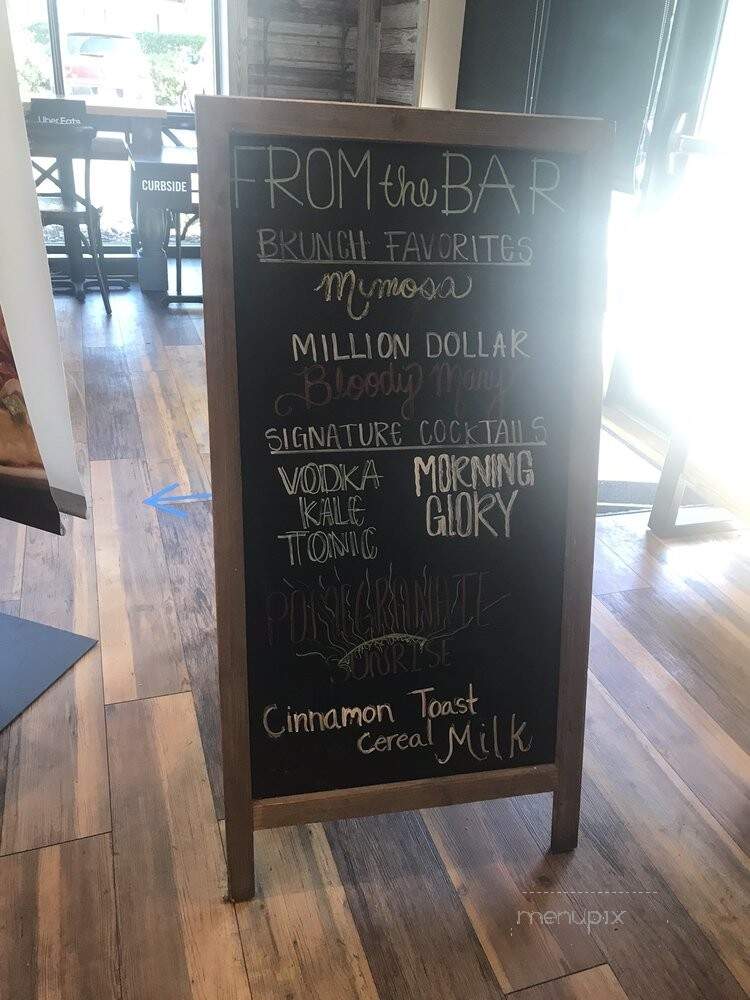 Uber Eats
CURBSIDE
FROM the BAR
BRUNCH FAVORITES
Mimosa
MILLION DOLLAR
Bloody Mary
SIGNATURE COCKTAILS
VODKA
KALE
TONIC
MORNING
GLORY
POMEGRANATE
SUNRISE
Cinnamon Toast
Cereal Milk
menupix